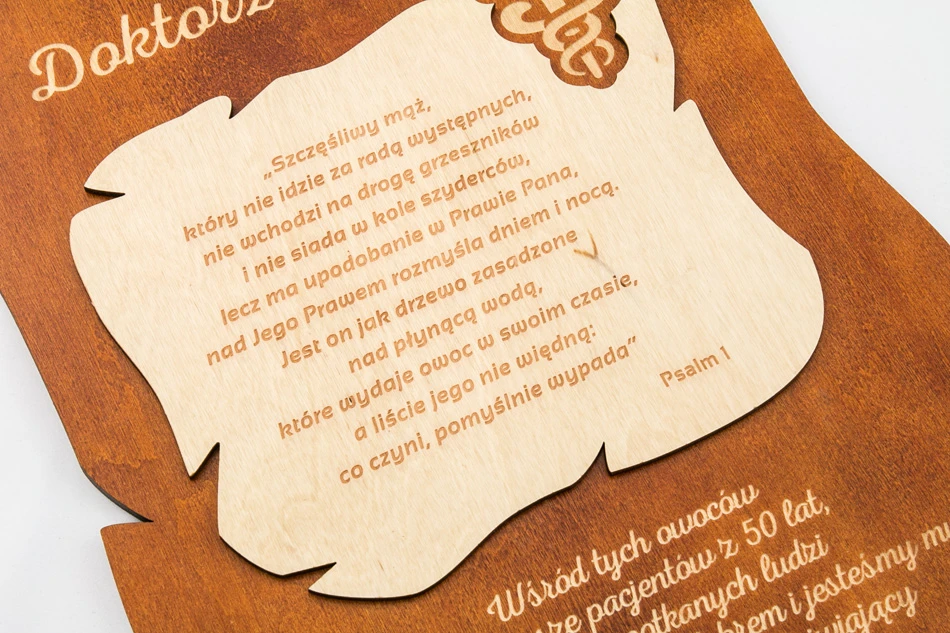 Doktorz
„Szczęśliwy mąż,
który nie idzie za radą występnych,
nie wchodzi na drogę grzeszników
i nie siada w kole szyderców,
lecz ma upodobanie w Prawie Pana,
nad Jego Prawem rozmyśla dniem i nocą.
Jest on jak drzewo zasadzone
nad płynącą wodą,
które wydaje owoc w swoim czasie,
a liście jego nie więdną:
co czyni, pomyślnie wypada”
Psalm 1
Wśród tych owoców
pacjentów z 50 lat,
ludzi
i jesteśmy